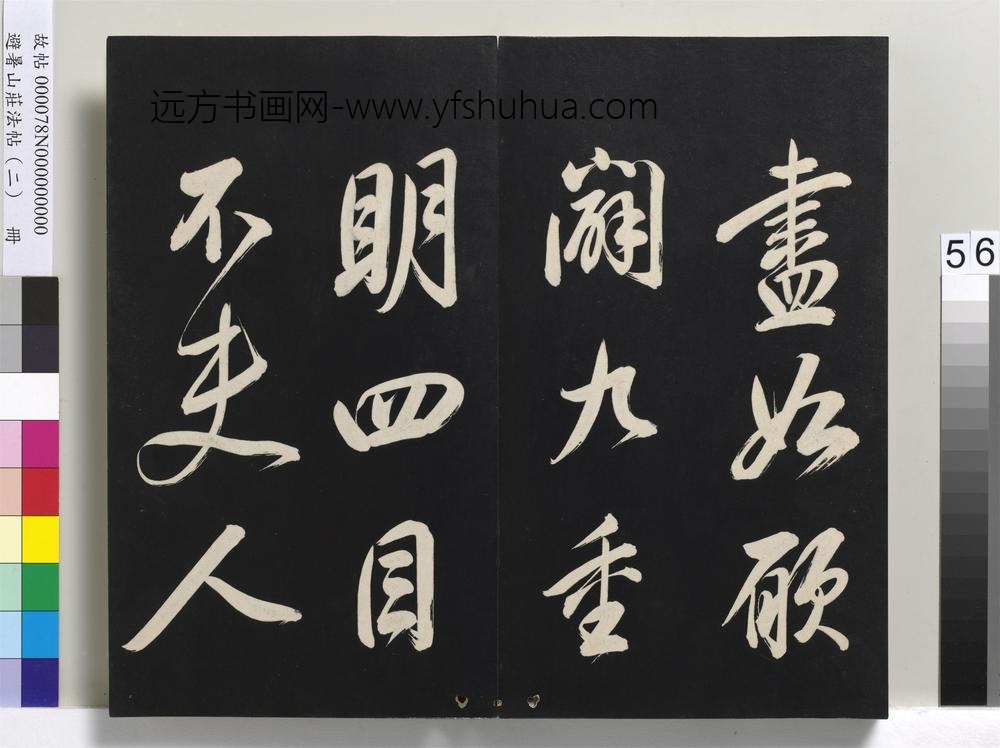 远方书画网-www.yfshuhua.com
盡如願
闢九重
明四目
不失人
故帖 000078N000000000
避暑山莊法帖（二） 冊
56